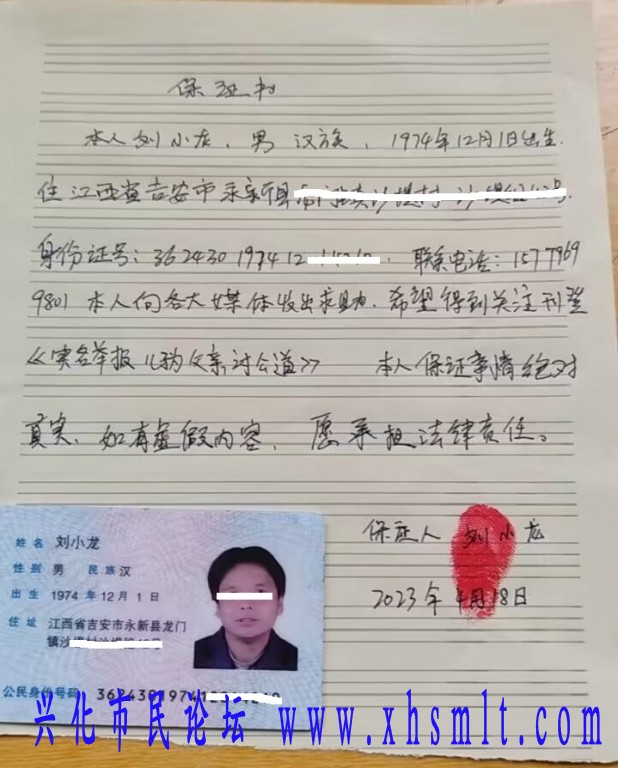 保证书
本人刘小龙，男 汉族，1974年12月1日出生.
住江西省吉安市永新县
身份证号：362430 1974 12 联系电话：1577969
9801 本人向各大媒体发出求助，希望得到关注刊登
《实名举报 儿为父亲讨公道》 本人保证事情绝对
真实、如有虚假内容，愿承担法律责任。
保证人 刘小龙
2023年4月18日
姓名 刘小龙
性别 男 民族 汉
出生 1974 年 12 月 1 日
住址 江西省吉安市永新县龙门
镇沙
公民身份号码 362430197412
兴化市民论坛 www.xhsmlt.com